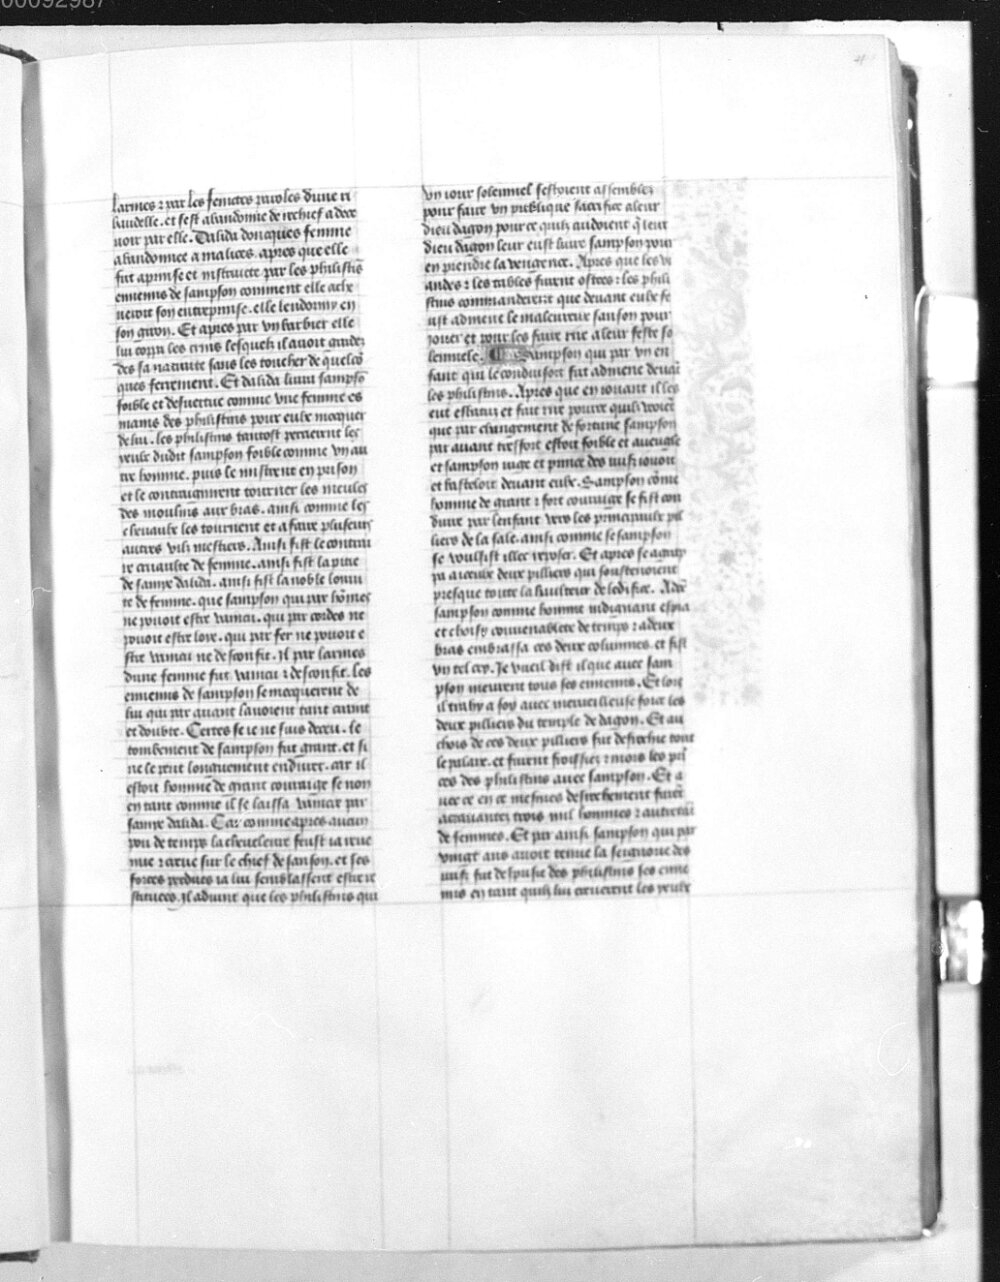 00092987
larmes ⁊ par les feinctes paroles dune ri
baudelle. et sest abandonne de rechief a dece
uoir par elle. Dalida doncques femme
abandonnee a malices. apres que elle
fut aprinse et instruicte par les philistis
ennemis de sampson comment elle ache
ueroit son entreprinse. elle lendormy en
son giron. Et apres par vn barbier elle
lui coppa les crins lesquelz il auoit gardez
des sa natiuite sans les toucher de quelcõ
ques ferrement. Et dalida liura sampsõ
foible et desuertue comme vne femme es
mains des philistins pour eulx mocquer
de lui. les philistins tantost percerent les
yeulx dudit sampson foible comme vn au
tre homme. puis le mistrent en prison
et le contraignirent tourner les meules
des moulins aux bras. ainsi comme les
cheuaulx les tournent et a faire plusieurs
autres vils mestiers. Ainsi fist le contrai
re cruaulte de femme. ainsi fist la pitie
de faincte dalida. ainsi fist la noble loiau
te de femme. que sampson qui par hõmes
ne pouoit estre vaincu. qui par cordes ne
pouoit estre loye. qui par fer ne pouoit e
stre vaincu ne desconfit. Il par larmes
dune femme fut vaincu ⁊ desconfit. les
ennemis de sampson se mocquerent de
lui qui par auant lauoient tant craint
et doubte. Certes se ie ne suis deceu. le
tombement de sampson fut grant. et si
ne le peut longuement endurer. car il
estoit homme de grant couraige se non
en tant comme il se laissa vaincre par
faincte dalida. Car comme apres aucun
pou de temps la cheueleure feust ia reue
nue ⁊ creue sur le chief de sanson. et ses
forces perdues ia lui semblassent estre re
stituees. Il aduint que les philistins qui
vn iour solennel festoient assemblez
pour faire vn publique sacrifice a leur
dieu dagon pour ce quilz cuidoient q̃ leur
dieu dagon leur eust liure sampson pour
en prendre la vengence. Apres que les vi
andes ⁊ les tables furent ostees ⁊ les phili
stins commanderent que deuant eulx fe
ust admene le maleureux sanson pour
iouer et pour les faire rire a leur feste so
lennele. Sampson qui par vn en
fant qui le conduisoit fut admene deuãt
les philistins. Apres que en iouant il les
eut esbatuz et fait rire pource quilz veoiẽt
que par changement de fortune sampson
par auant tresfort estoit foible et aueugle
et sampson iuge et prince des iuifz iouoit
et basteloit deuant eulx. Sampson cõme
homme de grant ⁊ fort couraige se fist con
duire par lenfant vers les principaulx pil
liers de la sale. ainsi comme se sampson
se voulsist illec reposer. Et apres se agrap
pa a iceulx deux pilliers qui soustenoient
presque toute la haulteur de ledifice. Adõc
sampson comme homme indignant espia
et choisy conuenablete de temps ⁊ a deux
bras embrassa ces deux columnes. et fist
vn tel cry. Je vueil dist il que auec sam
pson meurent tous ses ennemis. Et lors
il trahy a soy auec merueilleuse force les
deux pilliers du temple de dagon. Et au
chois de ces deux pilliers fut desrochie tout
le palaix. et furent froissiez ⁊ mors les prin
ces des philistins auec sampson. Et a
uec ce en ce mesmes desrochement furẽt
acrauantez trois mil hommes ⁊ autretãt
de femmes. Et par ainsi sampson qui par
vingt ans auoit tenue la seigneurie des
iuifz fut despuse des philistins ses enne
mis en tant quilz lui creuerent les yeulx